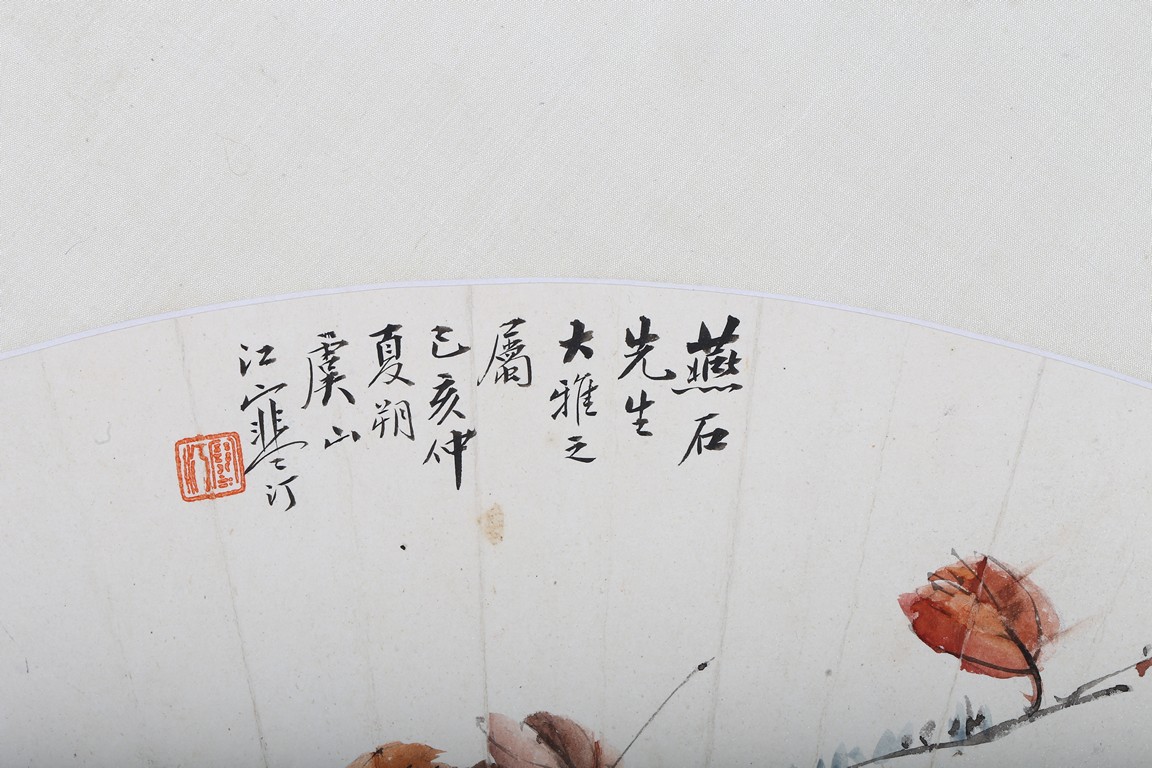 燕石
先生
大雅之
屬
己亥仲
夏朔
虞山
江寒汀